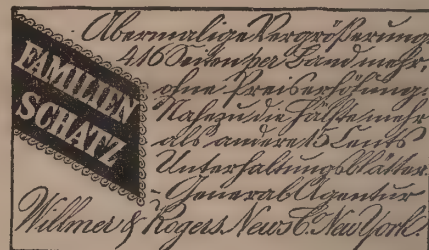 FAMILIEN
SCHATZ
Abermalige Vergrößerung
416 Seiten per Band mehr,
ohne Preiserhöhung.
Nahezu die Hälfte mehr
als andere 15 Cents
Unterhaltungsblätter.
- General Agentur
Willmer & Rogers News C. New York.